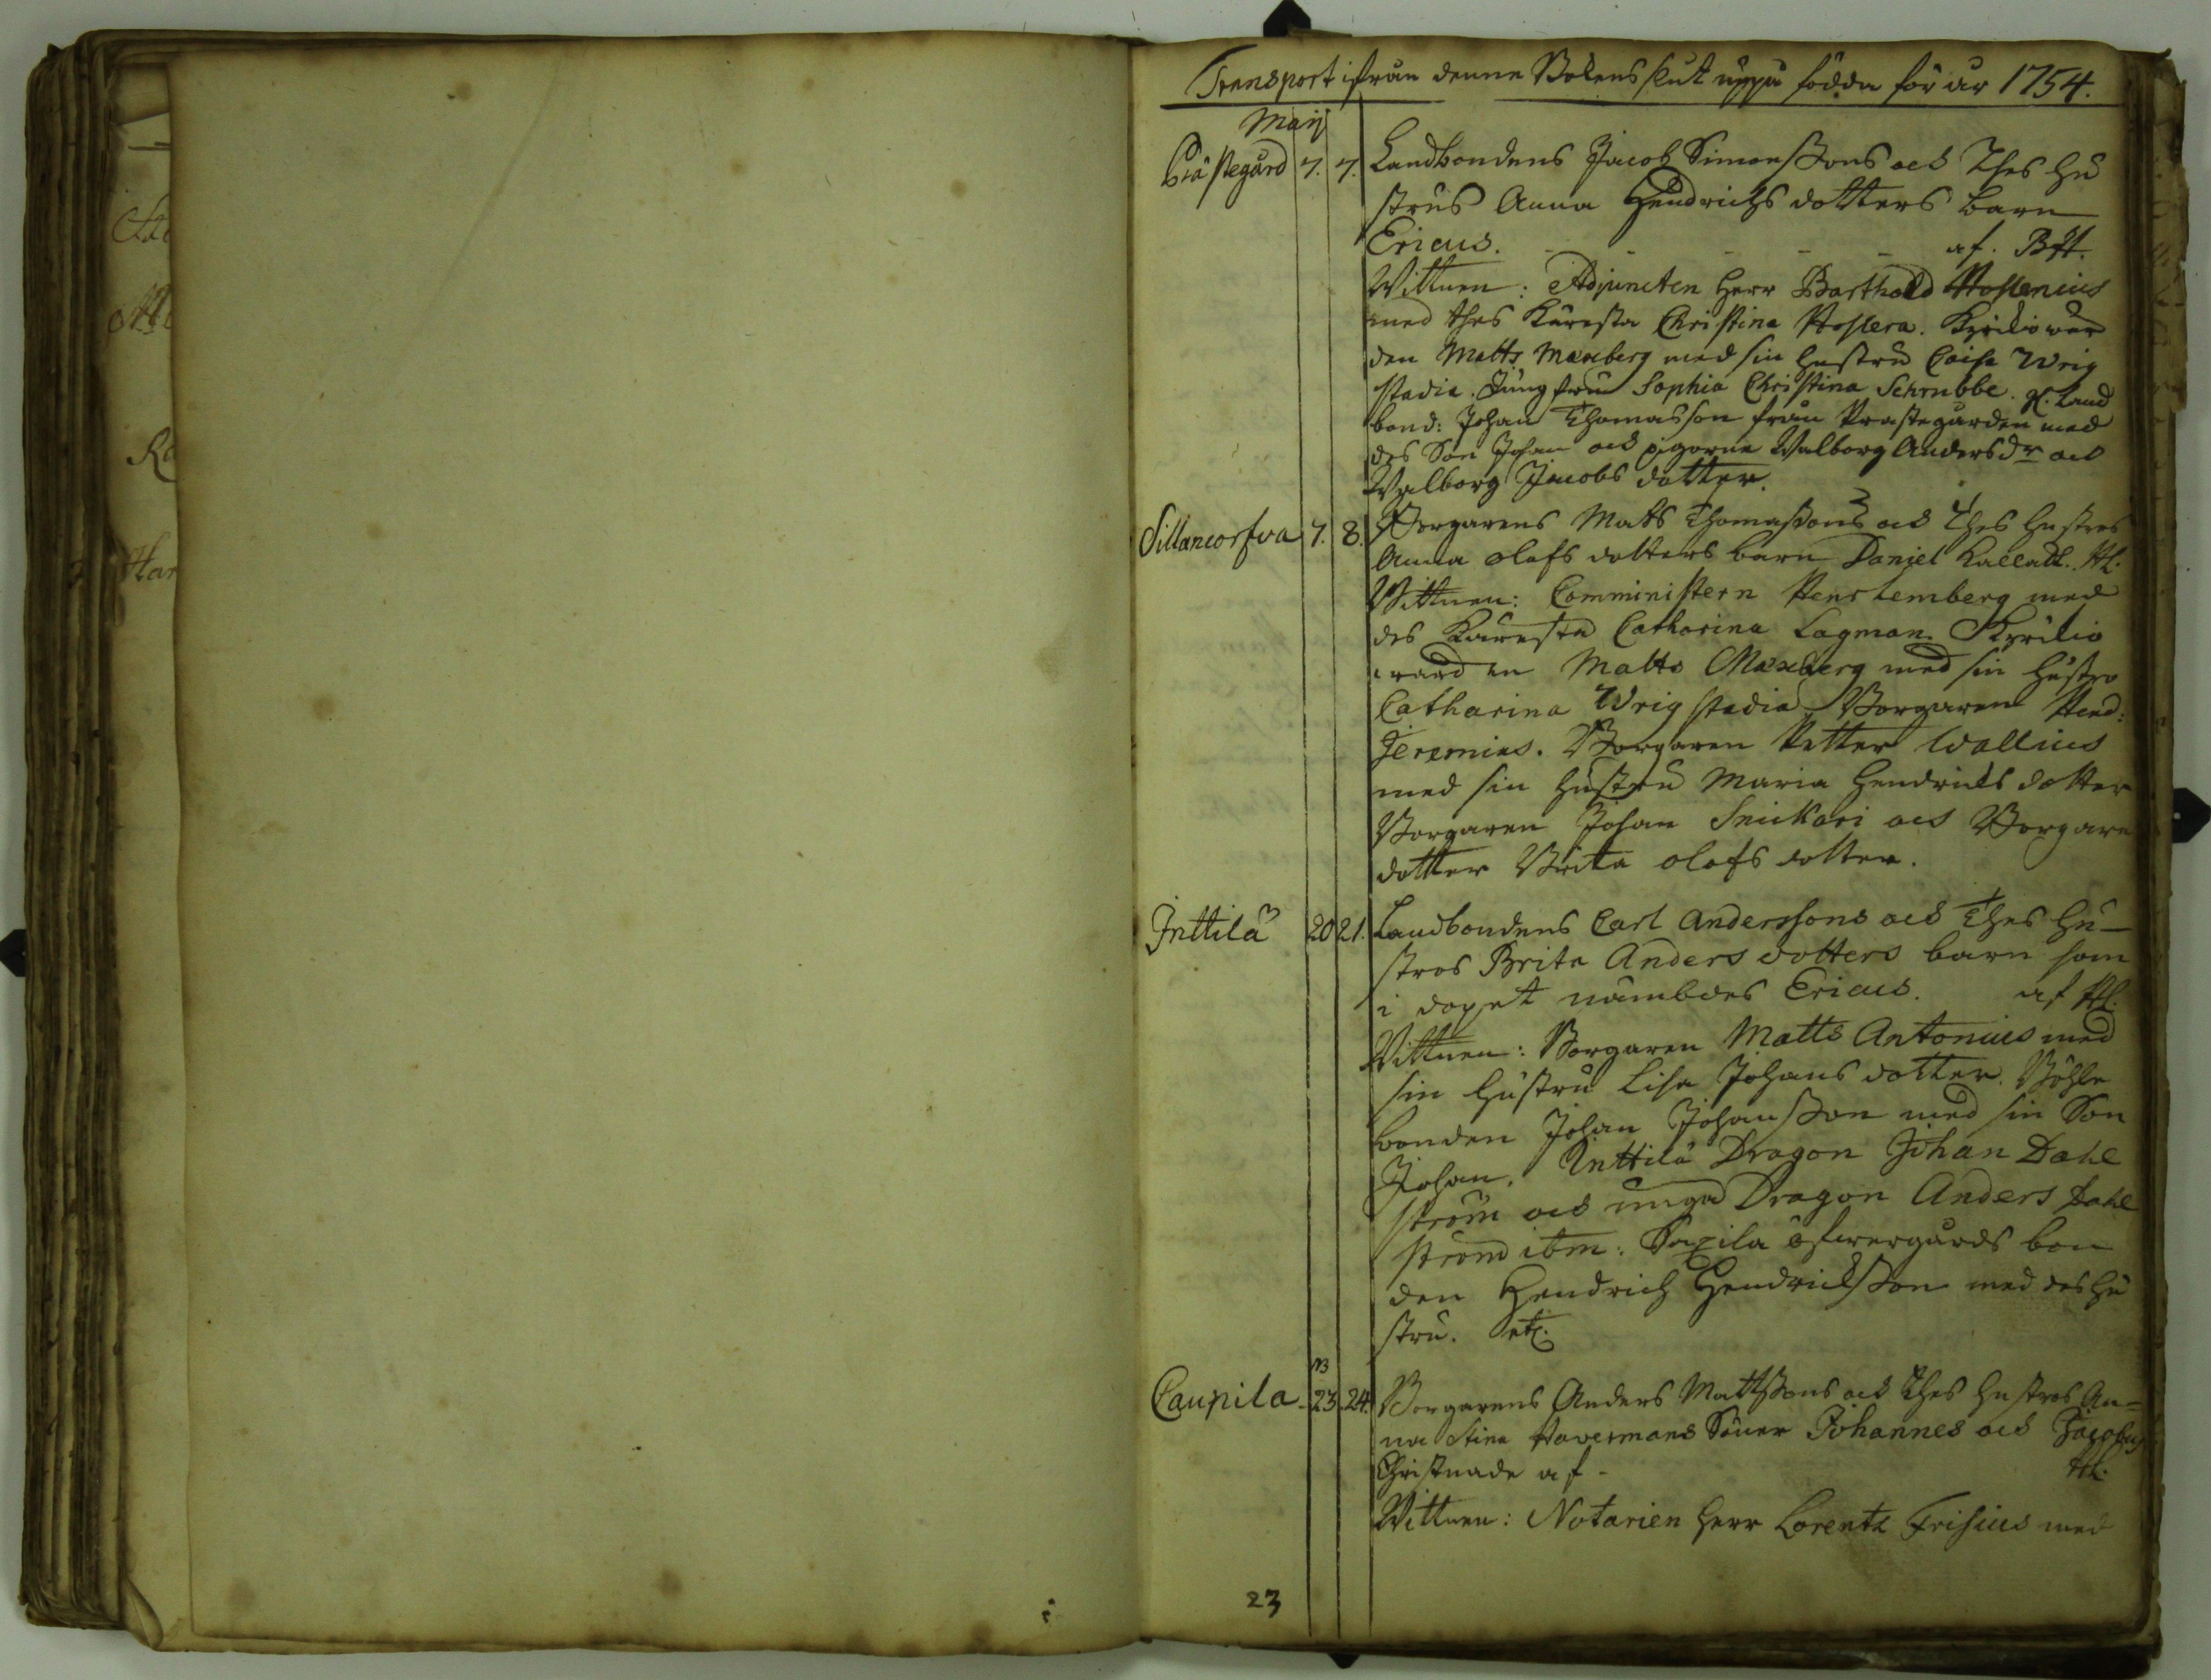 Transport ifrån denne Bokens slut uppå födda för år 1754.
Maij
Prästegård 7. 7. Landbondens Jacob Simonssons och Thes hu
strus Anna Hendrichs dotters barn
Ericus. - - - - af. BH.
Wittnen: Adjuncten Herr Barthold
med thes Käresta Christina. Kyrkiovär
den Matts Maxberg med sin hustru Caisa Wrig
stadia. Jungfrun Sophia Christina Schrubbe. gl. Land
bond: Johan Thomasson från Prästegården med
des Son Johan och pigorna Walborg Andersdr och
Walborg Jacobs dotter.
Sillancorfva 7. 8. Borgarens Mats Thomassons och Thes hustrus
Anna Olofs dotters barn Daniel kalladt. HL.
Wittnen: Comministern med
des Käresta Catharina Lagman. Kyrkio
wärden Matts Maxberg med sin hustro
Catharina Wrigstadia. Borgaren Hend:
Jeremias. Borgaren Petter Wallius
med sin hustru Maria Hendrichs dotter
Borgaren Johan Snickari och Borgare
dotter Brita Olofs dotter.
Inttilä 20 21. Landbondens Carl Anderssons och Thes hu-
stros Brita Anders dotters barn som
i dopet nämbdes Ericus. af HL.
Wittnen: Borgaren Matts Antonius med
sin hustru Lisa Johans dotter. Böhle
bonden Johan Johansson med sin Son
Johan. Inttilä Dragon Johan Dahl
ström och unga Dragon Anders Dahl
ström ibm: öfwergårds bon
den Hendrich Hendrichsson med des hu
stru. etc.
NB
Caupila - 23 24. Borgarens Anders Mattssons och Thes hustros An-
na Stina Havermans Söner Johannes och Jacobus
Christnade af - HL.
Wittnen: Notarien Herr Lorentz Frisius med
23